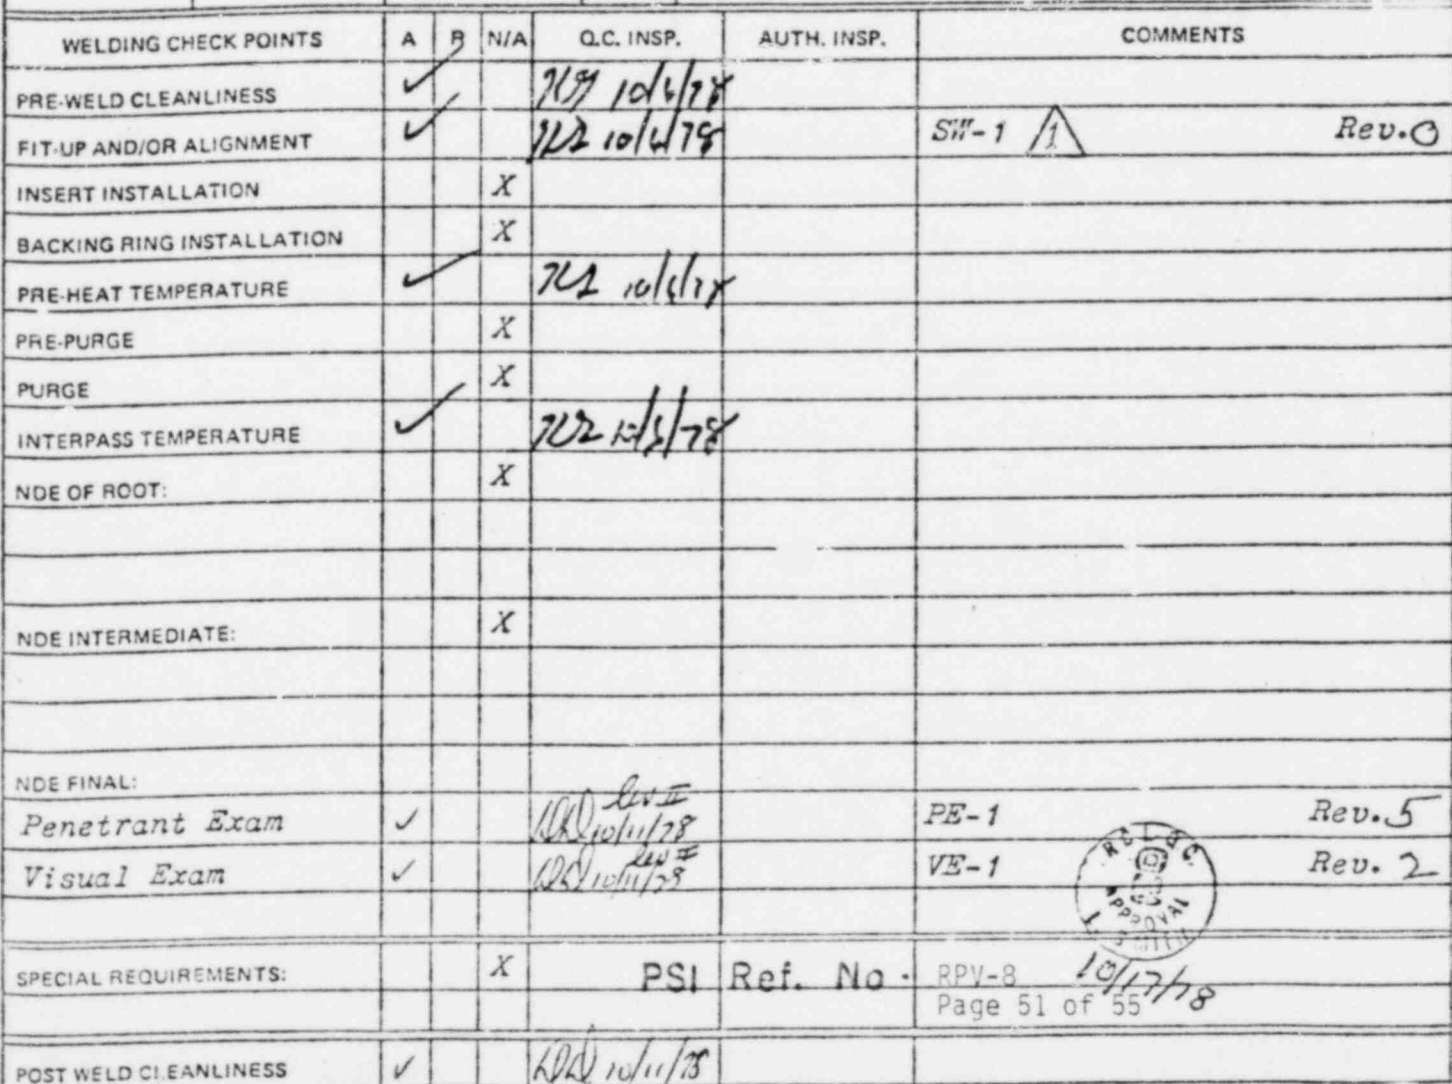 WELDING CHECK POINTS A R N/A Q.C. INSP. AUTH. INSP. COMMENTS
PRE-WELD CLEANLINESS ✓ 10/6/78
FIT-UP AND/OR ALIGNMENT ✓ 10/6/78 SW-1 1 Rev.0
INSERT INSTALLATION X
BACKING RING INSTALLATION X
PRE-HEAT TEMPERATURE ✓ 10/6/78
PRE-PURGE X
PURGE X
INTERPASS TEMPERATURE ✓ 10/6/78
NDE OF ROOT: X
NDE INTERMEDIATE: X
NDE FINAL:
Penetrant Exam ✓ lev II 10/11/78 PE-1 Rev.5
Visual Exam ✓ lev II 10/11/78 VE-1 Rev. 2
APPROVAL
SPECIAL REQUIREMENTS: X PSI Ref. No. RPV-8 10/17/78
Page 51 of 55
POST WELD CLEANLINESS ✓ 10/11/78